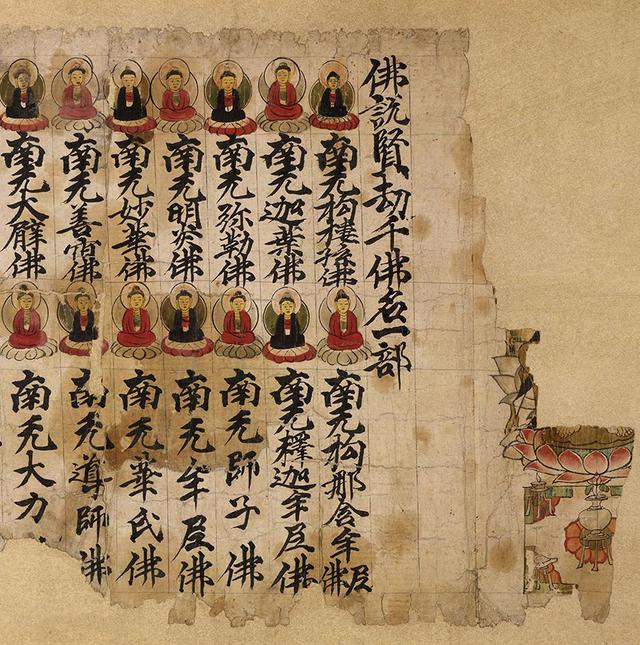 佛説賢劫千佛名一部
南无拘樓孫佛
南无拘那含牟尼佛
南无迦葉佛
南无釋迦牟尼佛
南无弥勒佛
南无師子佛
南无明炎佛
南无牟尼佛
南无妙華佛
南无華氏佛
南无善宿佛
南无導師佛
南无大臂佛
南无大力